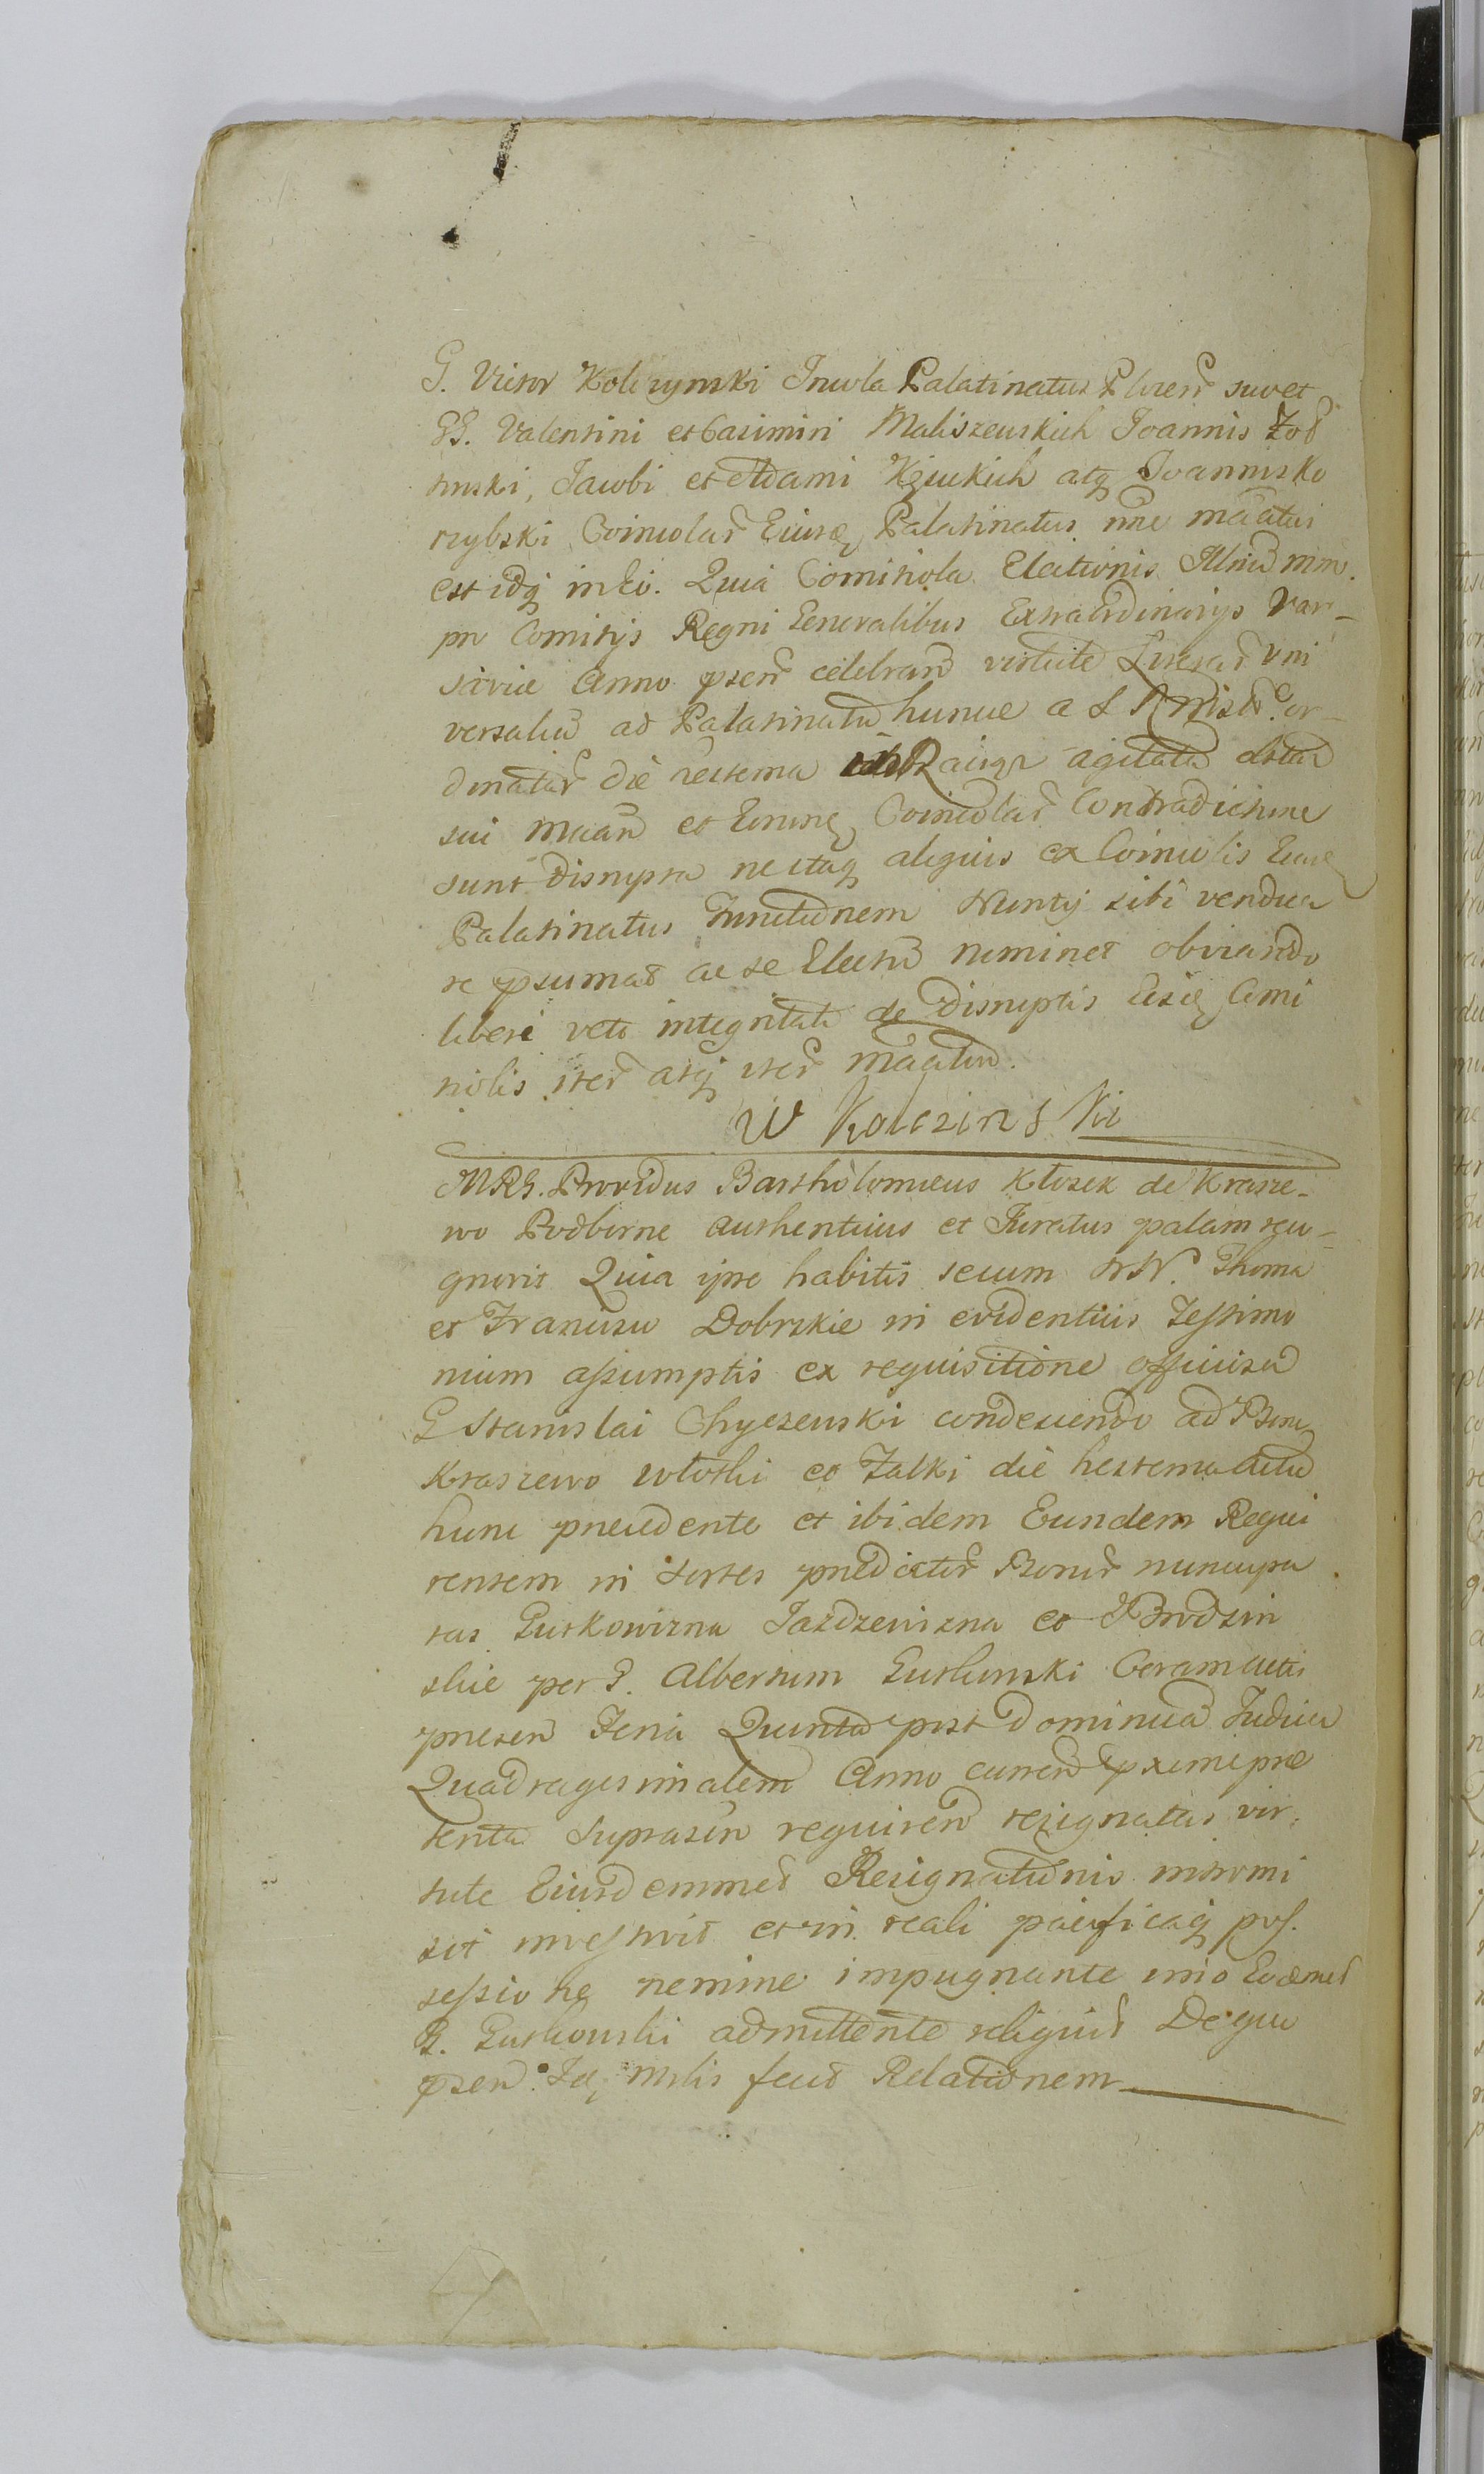 G. Victor Kolczynski Incola Palatinatus Plocen suo et
GG. Valentini et Casimiri Maliszewskich Joannis Żoł
tnski, Jacobi et Adami Kijuckich atq Joannis Ko
rzybski Coincolar Eiusd Palatinatus nne maatus
est idq in Eo. Quia Comitiola Elationis Illriu mm.
pro Comitijs Regni Generalibus Extraordinarijs Var-
saviæ Anno psen celebran virtute Literar Vni
versaliu ad Palatinatu hunce a S R Mtte or-
dinatar die hesterna Raciąż agitata
sui maan et Eorund Coincolar Contradictione
sunt disrupta ne itaq aliquis ex Coincolis Eiusd
Palatinatus Functionem Nuntij sibi vendica
re psumat ac se Electu nominet obviando
liberi veto integritati de disruptis eisd Comi
tiolis iter atq iter maatur.
W Kolczinski
MRG. Providus Bartholomæus Kłosek de Krasze-
wo Podborne authenticus et Juratus palam recu-
gnovit Quia ipse habitis secum NN. Thoma
et Francisco Dobrskie in evidentius Testimo
nium assumptis ex requisitione officiosa
G Stanislai Chyczewski condescendo ad Bona
Kraszewo Włoski et Falki die hesterna actu
hunc præcedente et ibidem Eundem Requi
rentem in sortes prædictor Bonor nuncupa
tas Gutkowizna Jazdzewizna et Brodzin
skie per G. Albertum Gutkowski Coram actis
præsen Feria Quinta post Dominica Judica
Quadragesimalem Anno curren proxime præ
terita suprascri requiren resignatas vir-
tute Eiusdemmet Resignationis intromi
sit investivit et in reali pacificaq pos-
sessione nemine impugnante imo Eodmet
G. Gutkowski admittente reliquit De quo
psen suam fecit Relationem